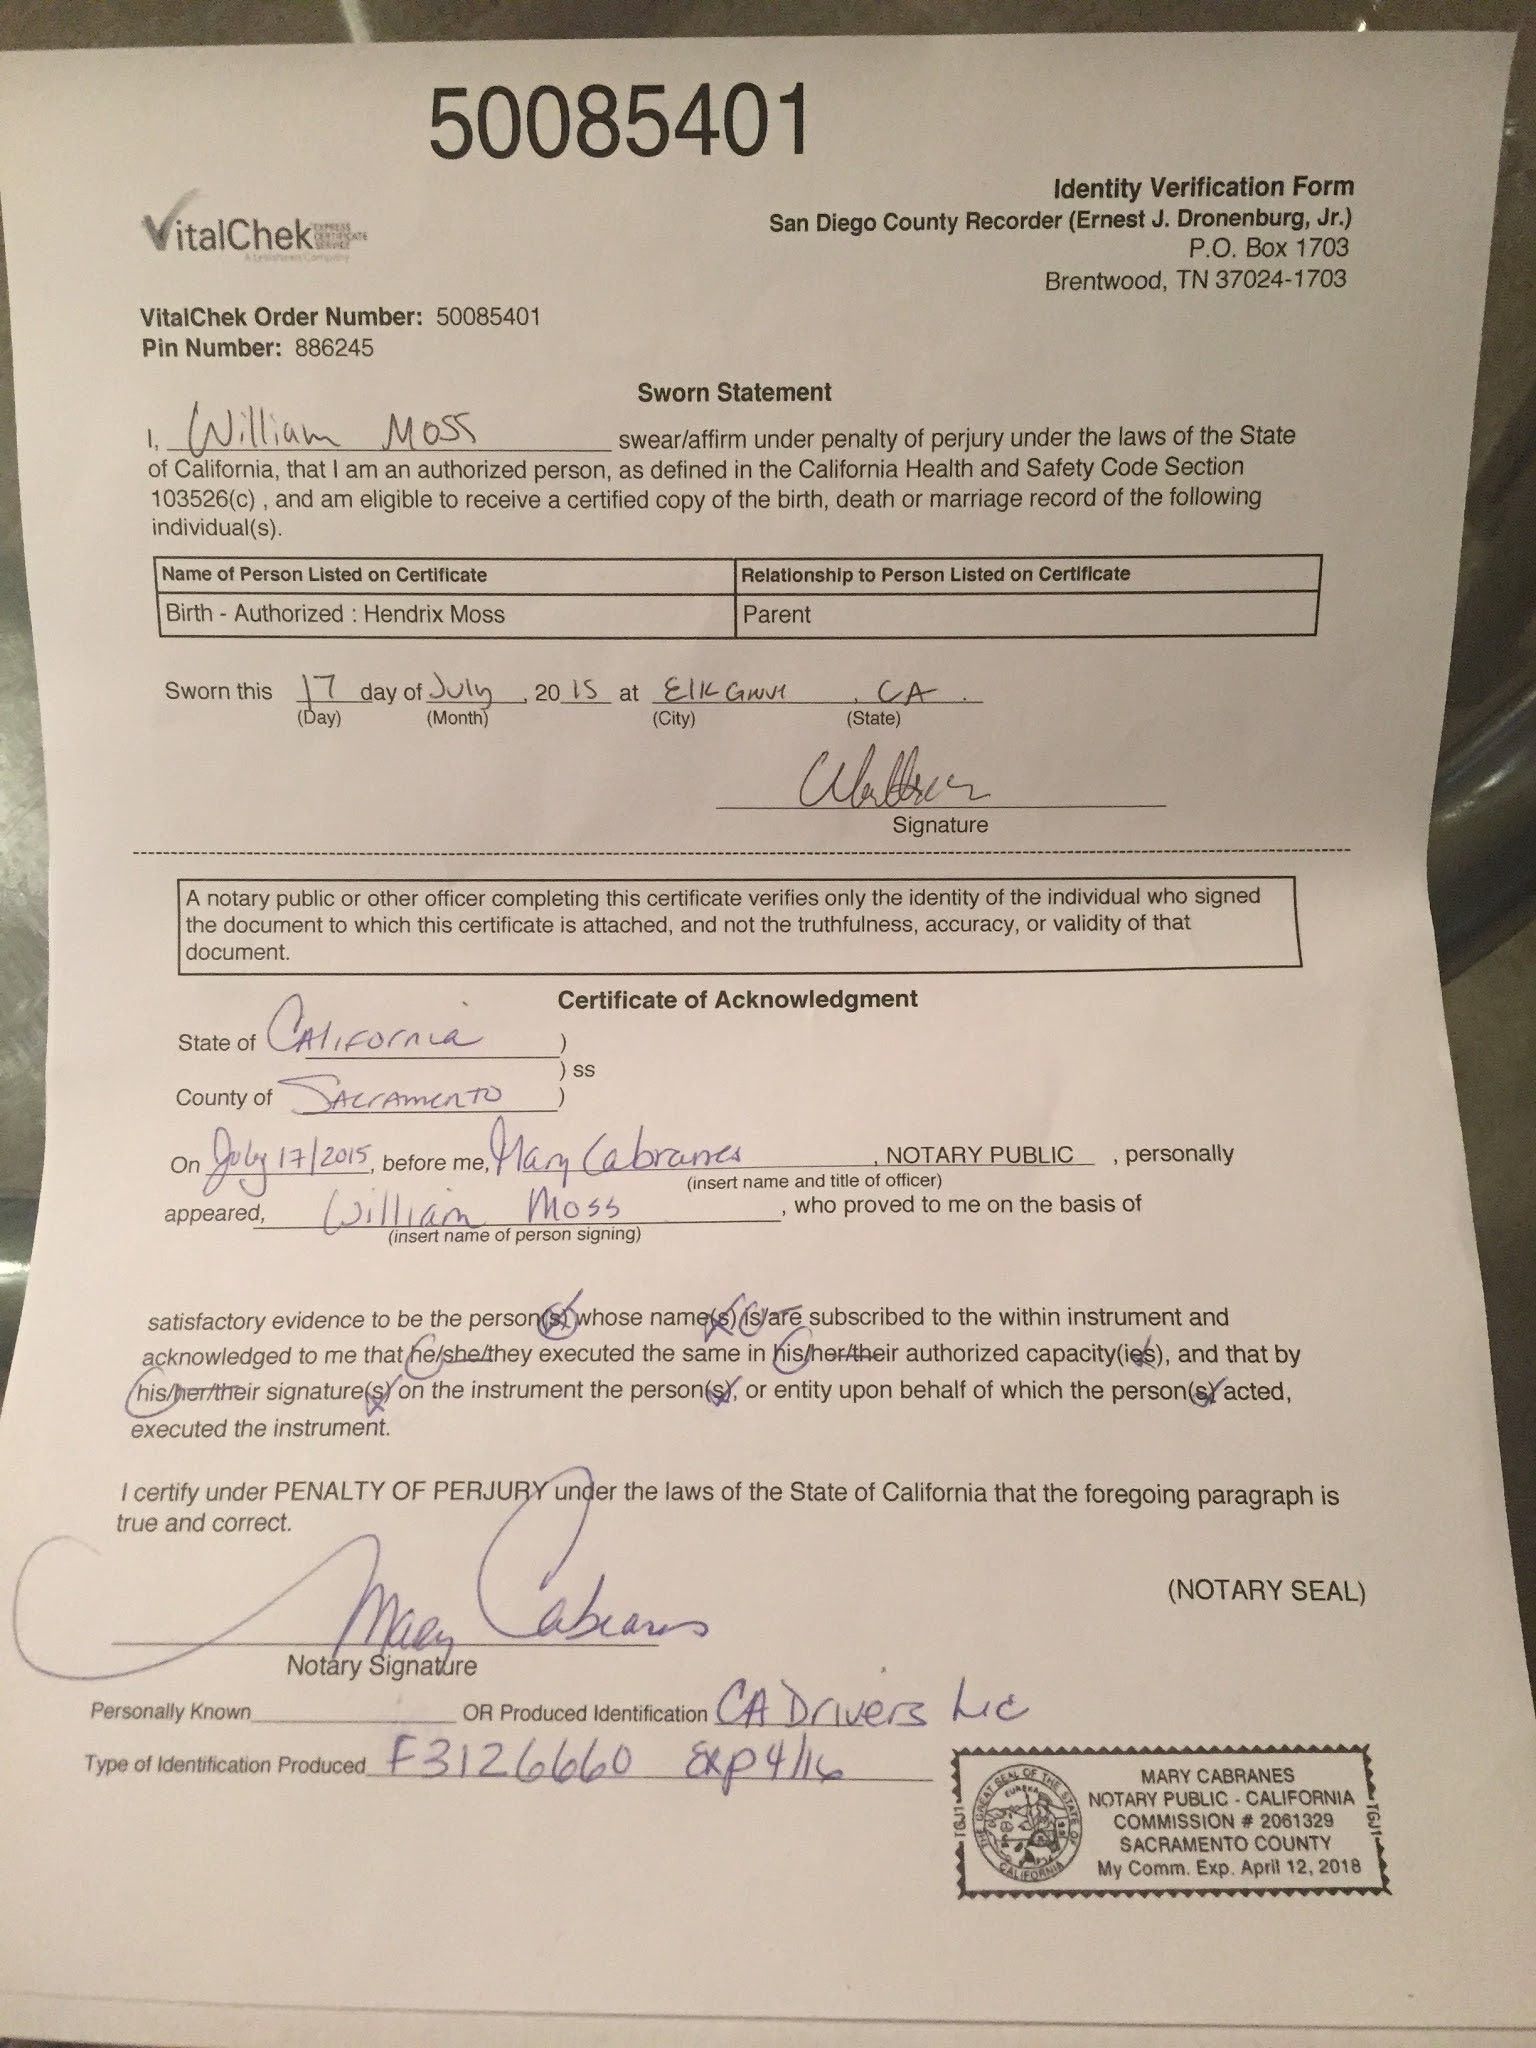 50085401
Identity Verification Form
San Diego County Recorder (Ernest J. Dronenburg, Jr.)
P.O. Box 1703
Brentwood, TN 37024-1703
VitalChek EXPRESS CERTIFICATE SERVICE
A LexisNexis Company
VitalChek Order Number: 50085401
Pin Number: 886245
Sworn Statement
I, William Moss swear/affirm under penalty of perjury under the laws of the State
of California, that I am an authorized person, as defined in the California Health and Safety Code Section
103526(c) , and am eligible to receive a certified copy of the birth, death or marriage record of the following
individual(s).
Name of Person Listed on Certificate Relationship to Person Listed on Certificate
Birth - Authorized : Hendrix Moss Parent
Sworn this 17 day of July, 2015 at Elk Grove, CA.
(Day) (Month) (City) (State)
Signature
A notary public or other officer completing this certificate verifies only the identity of the individual who signed
the document to which this certificate is attached, and not the truthfulness, accuracy, or validity of that
document.
Certificate of Acknowledgment
State of California )
) ss
County of Sacramento )
On July 17/2015, before me, Mary Cabranes, NOTARY PUBLIC , personally
(insert name and title of officer)
appeared, William Moss, who proved to me on the basis of
(insert name of person signing)
satisfactory evidence to be the person(s) whose name(s) is/are subscribed to the within instrument and
acknowledged to me that he/she/they executed the same in his/her/their authorized capacity(ies), and that by
his/her/their signature(s) on the instrument the person(s), or entity upon behalf of which the person(s) acted,
executed the instrument.
I certify under PENALTY OF PERJURY under the laws of the State of California that the foregoing paragraph is
true and correct.
(NOTARY SEAL)
Mary Cabranes
Notary Signature
Personally Known OR Produced Identification CA Drivers Lic
Type of Identification Produced F3126660 Exp 4/16
MARY CABRANES
NOTARY PUBLIC - CALIFORNIA
COMMISSION # 2061329
SACRAMENTO COUNTY
My Comm. Exp. April 12, 2018
THE GREAT SEAL OF THE STATE OF CALIFORNIA
EUREKA
TGJ1
TGJ1